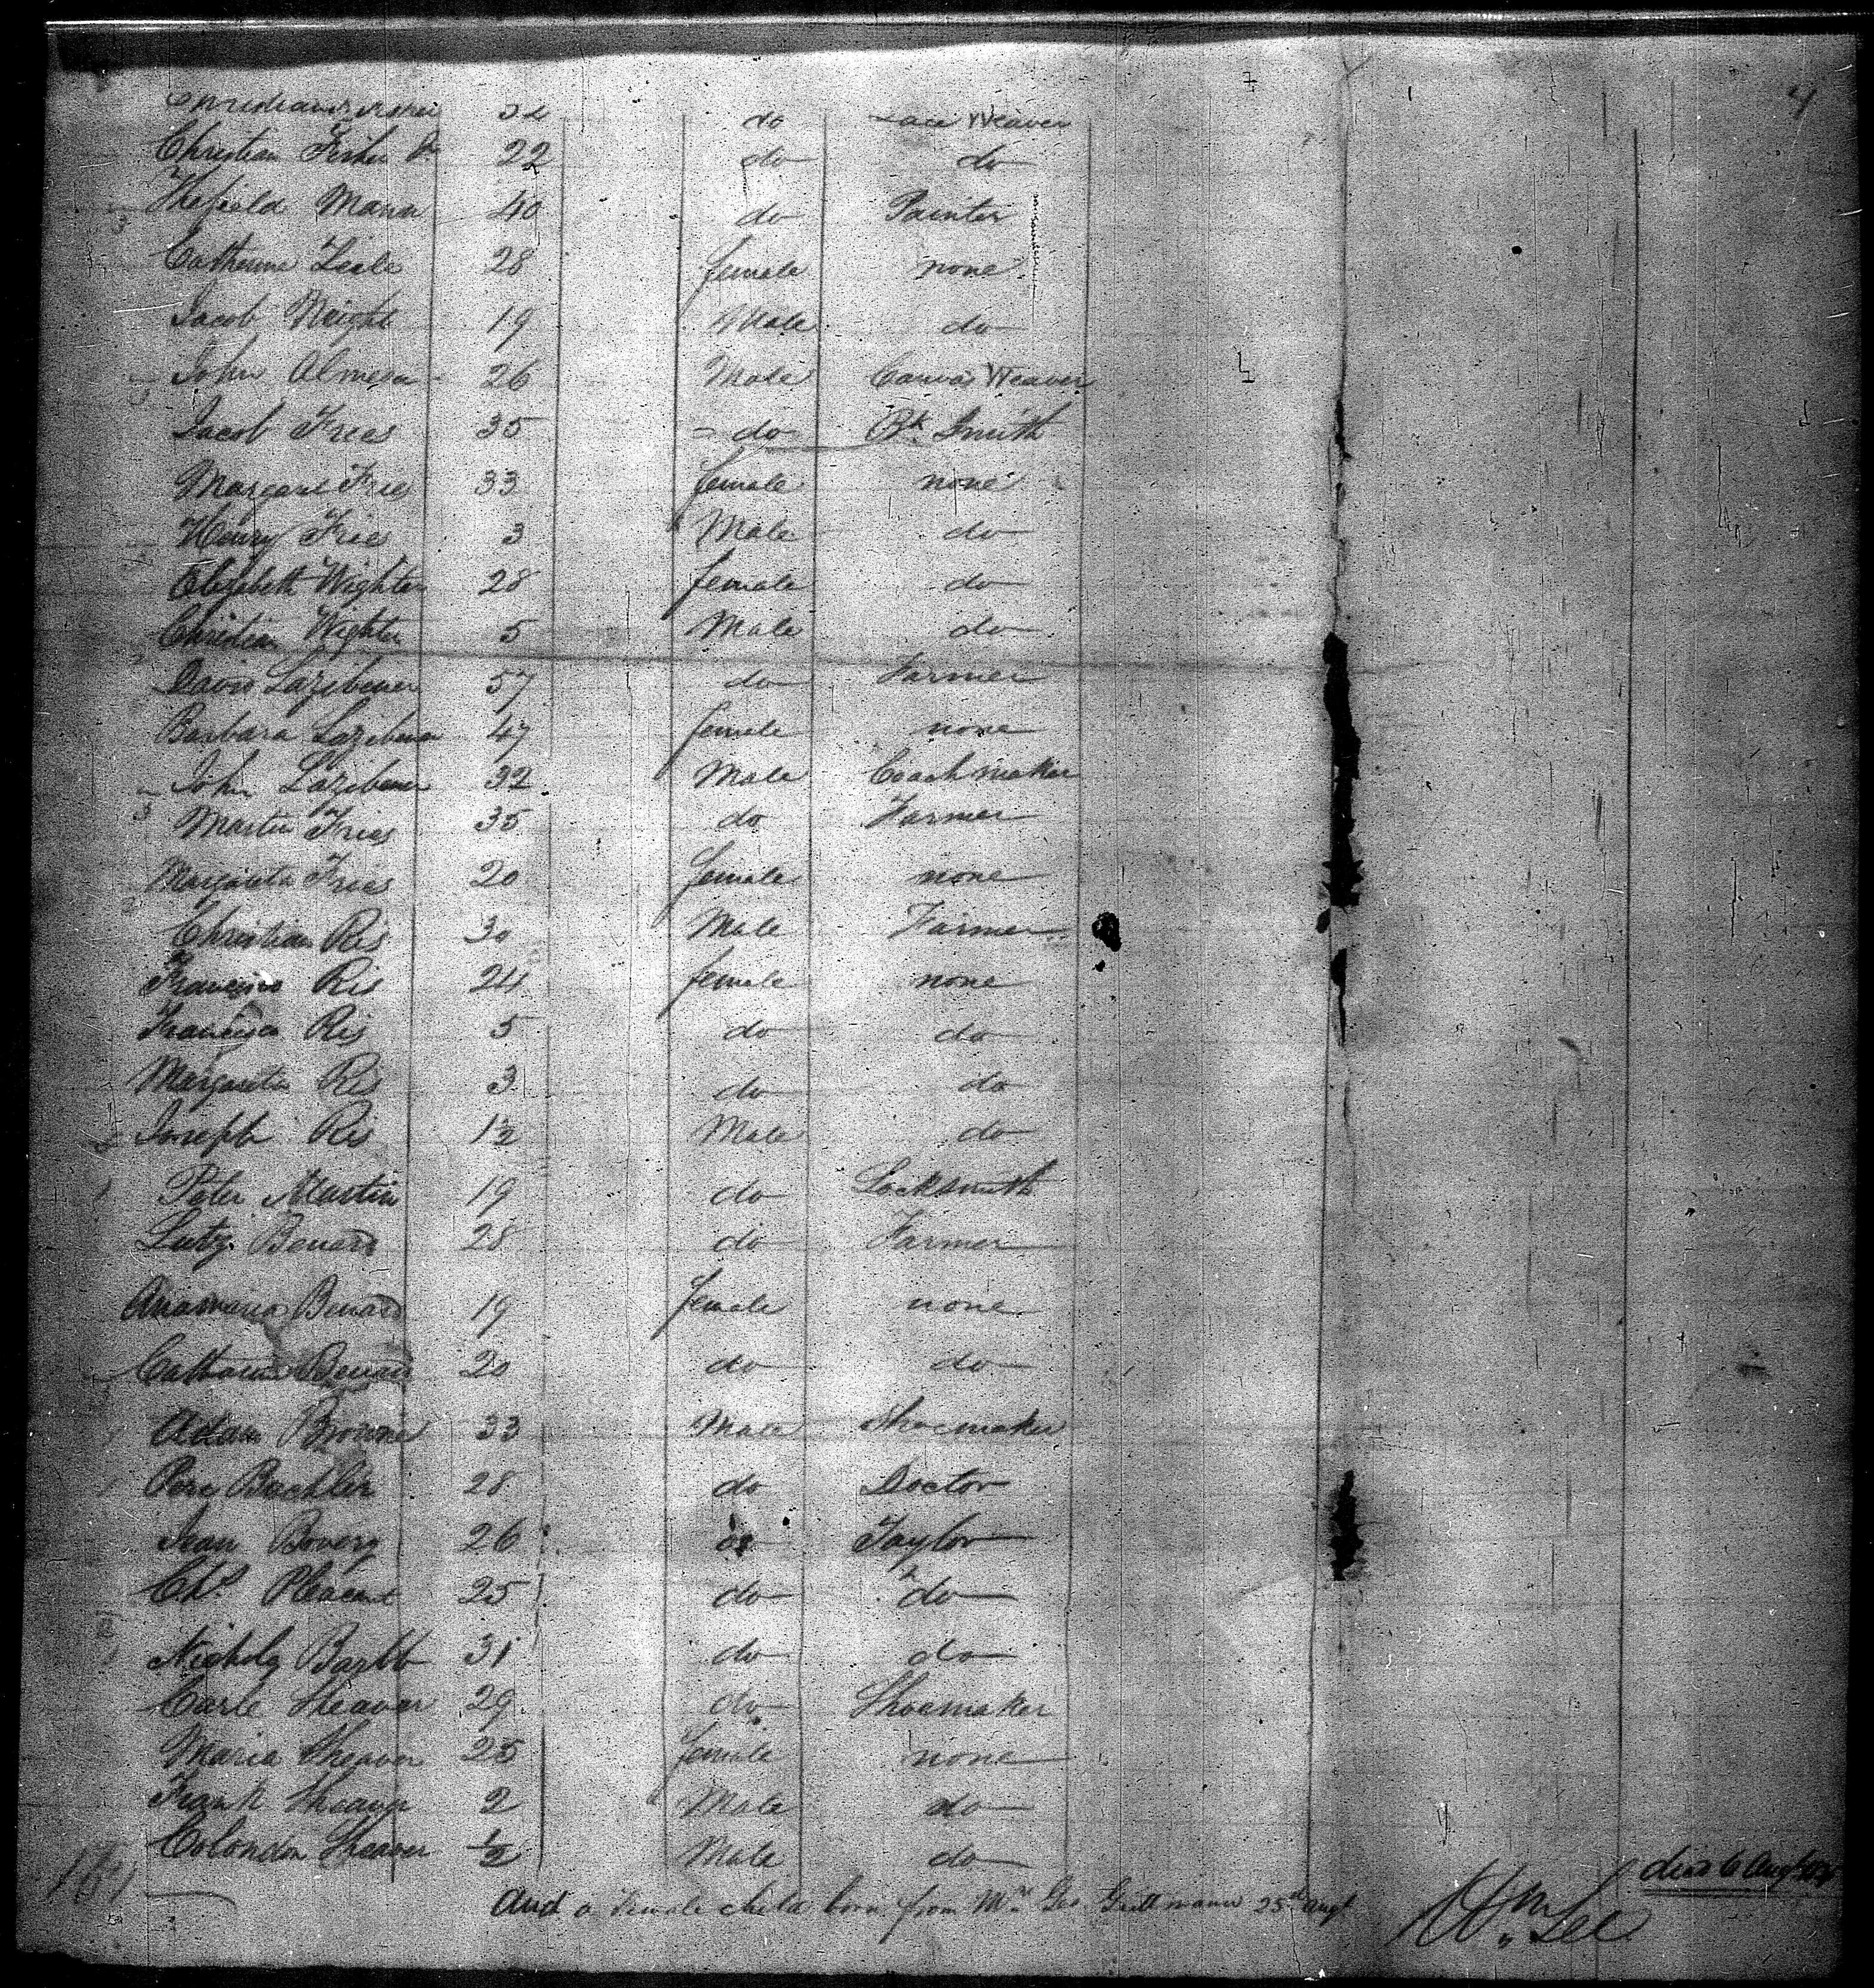 32 do Lace Weaver
Christian Fisher Jr 22 do do
Mann 40 do Painter
Catherine Lisle 28 female none
Jacob Wright 19 Male do
John Almera 26 Male Canvas Weaver
Jacob Fries 35 do Bk Smith
Margaret Fries 33 female none
Henry Fries 3 Male do
Elizibeth Wighter 28 female do
Christian Wighter 5 Male do
David Lazibener 57 do Farmer
Barbara Lazibener 47 female none
John Lazibener 32 Male Coachmaker
Martin Fries 35 do Farmer
Margareta Fries 20 female none
Christian Ris 30 Male Farmer
Francisca Ris 24 female none
Francisca Ris 5 do do
Margareta Ris 3 do do
Joseph Ris 1½ Male do
Peter Martin 19 do Locksmith
Lutz Benard 28 do Farmer
Anamaria Benard 19 female none
Catharina Benard 20 do do
Adam Browne 33 Male Shoemaker
Bachler 28 do Doctor
Jean Bovery 26 do Taylor
Chs Pleacent 25 do do
Nicholy Barbb 31 do do
Carle Sheaver 29 do Shoemaker
Maria Sheaver 25 female none
Frank Sheaver 2 Male do
Colondon Sheaver ½ Male do died 6 Augt
And a female child born from Mrs Geo Grittmann 25th Augt
Wm Lee